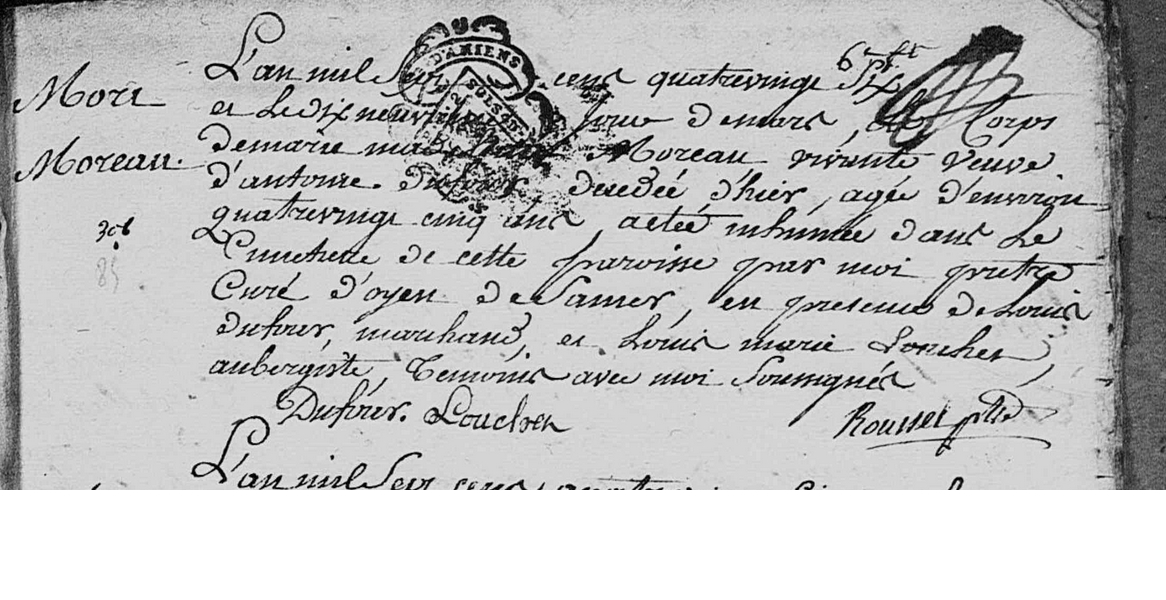 6 pbt
L'an mil Sept cens quatrevingt Dix
Mort
et Le dix neuvieme jour de mars, le Corps
Moreau.
de marie Moreau vivante veuve
d'antoine Dufour decedée d'hier, agée d'environ
quatrevingt cinq ans, a eté inhumée dans Le
85
Cimetiere de cette paroisse par moi pretre
Curé d'oyen de Samer, en presence de Louis
dufour, marchand, et Louis marie Loucher,
aubergiste, Temoins avec moi Soussignés
Dufour. Loucher Roussel
L'an mil Sept cens
D'AMIENS